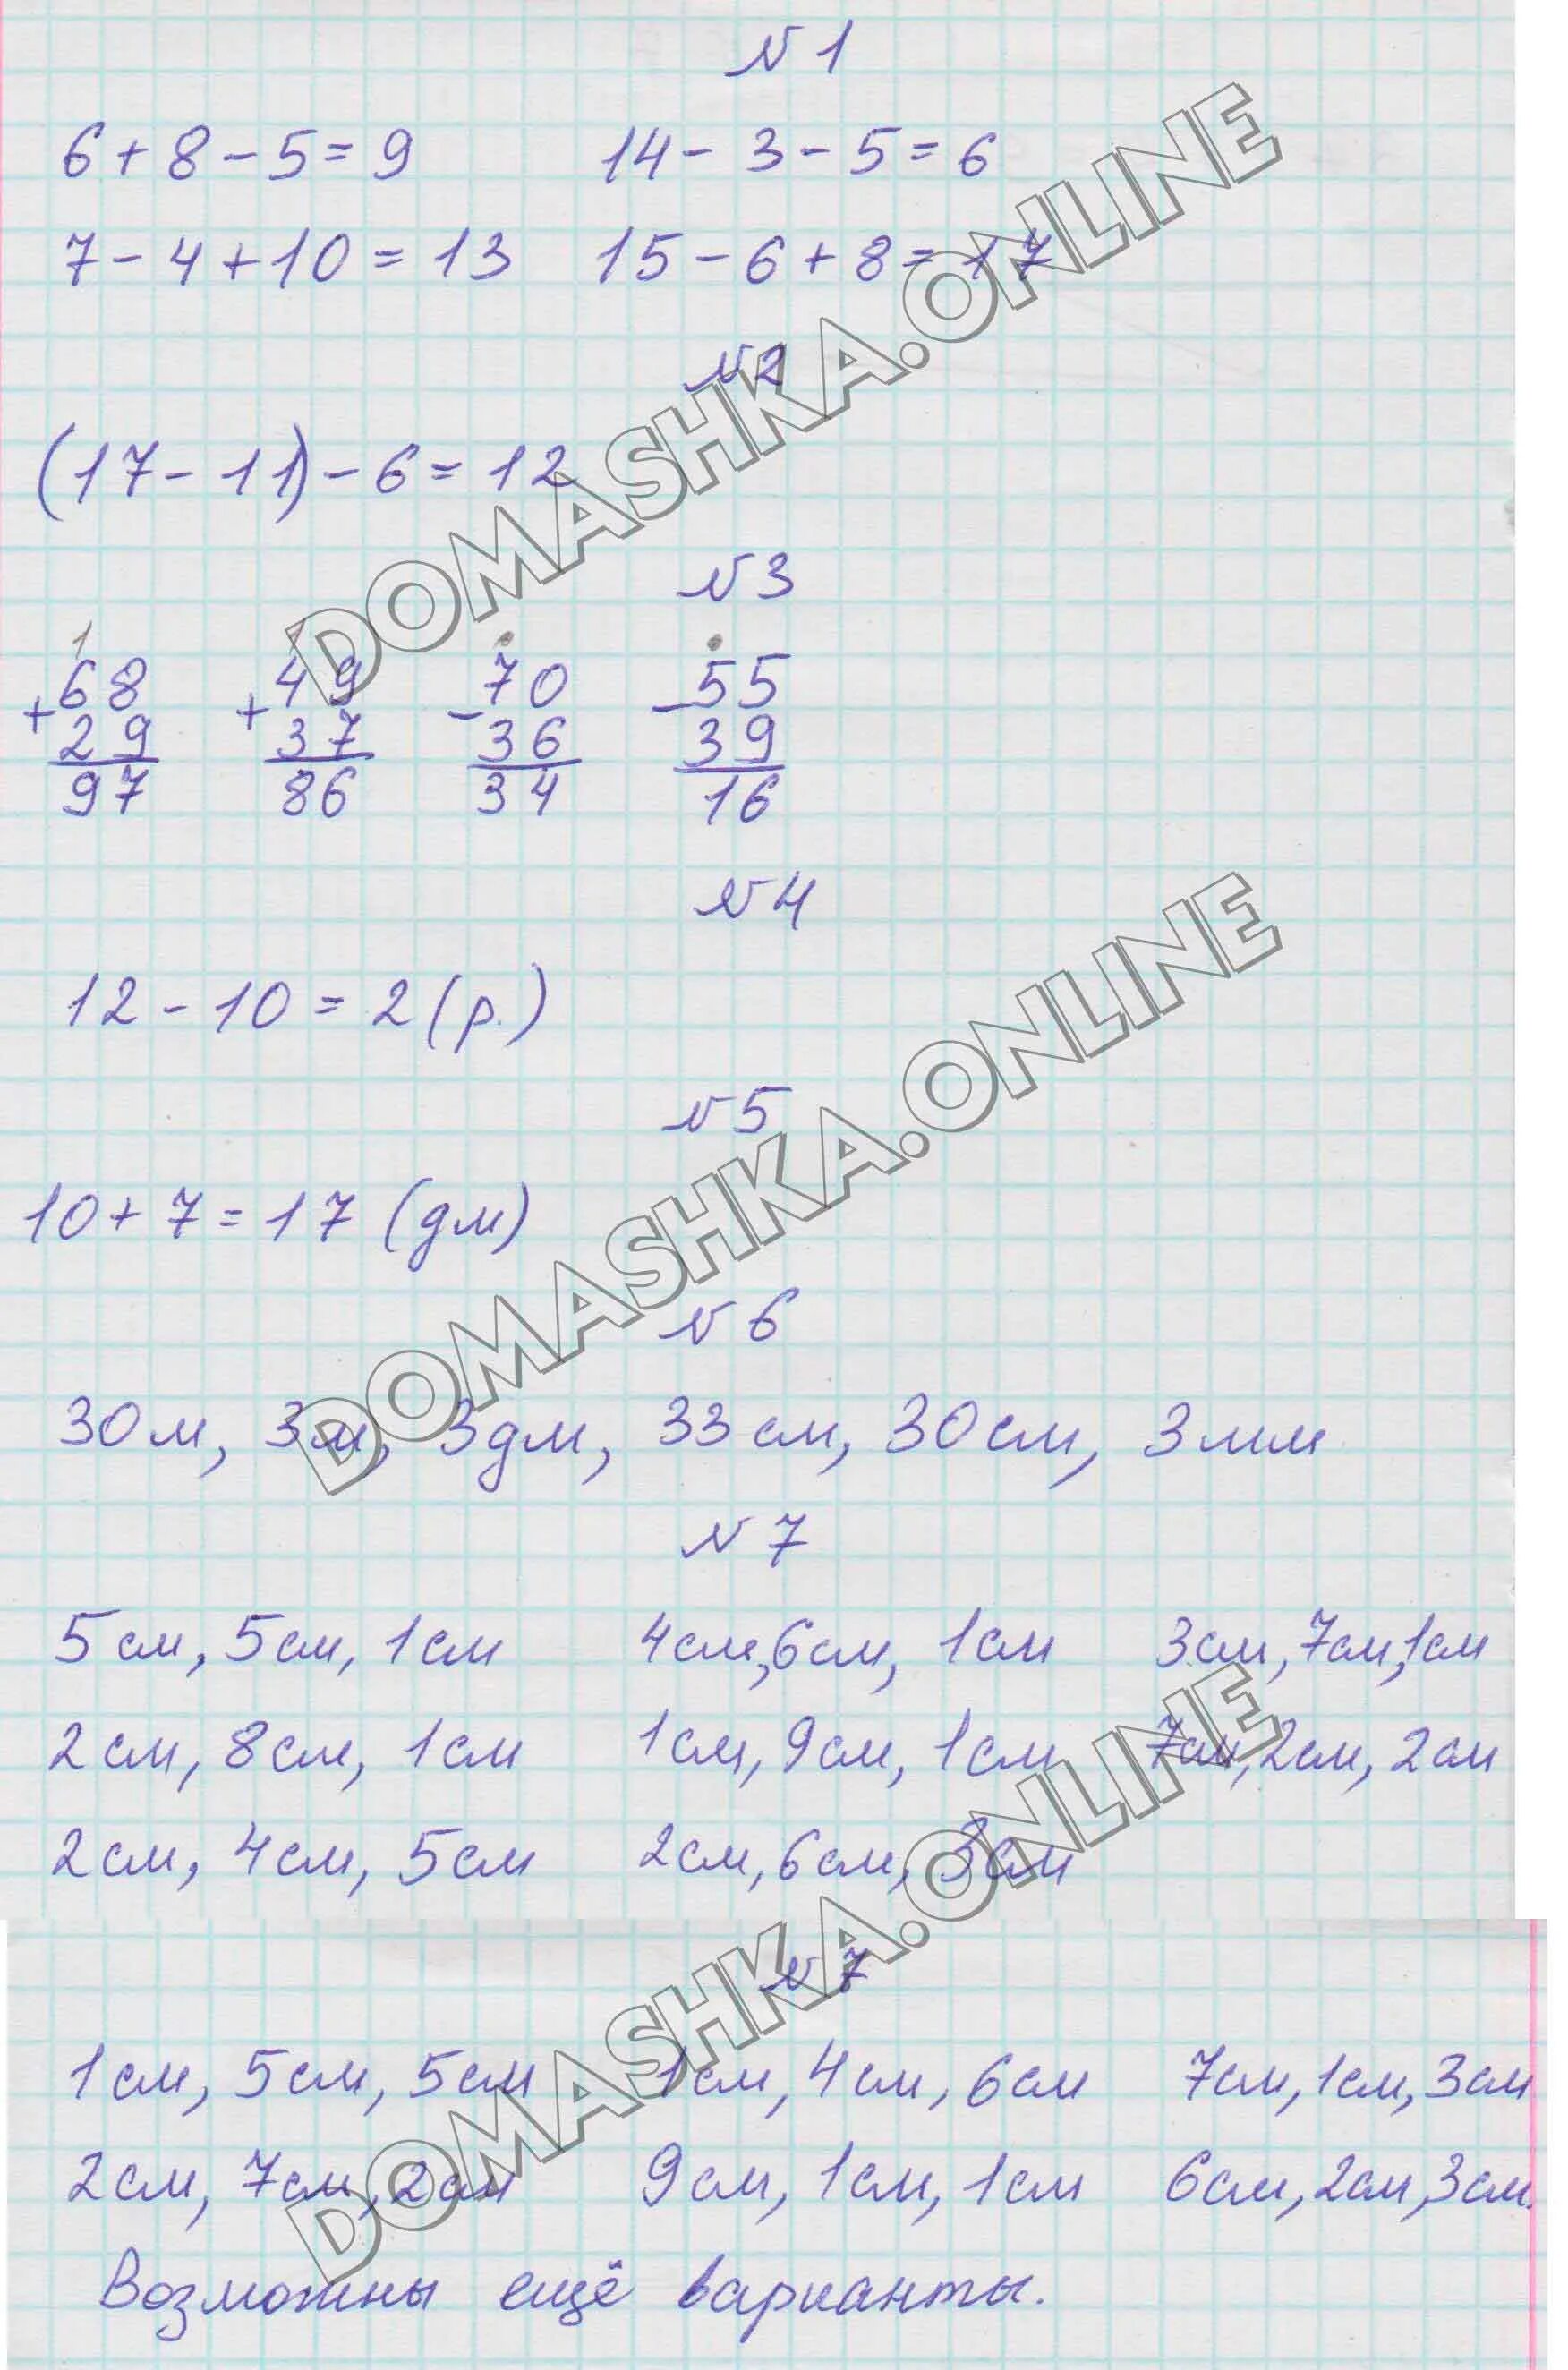 №1
6+8-5=9 14-3-5=6
7-4+10=13 15-6+8=17
№2
(17-11)-6=12
№3
1 1 • •
+68 +49 -70 -55
29 37 36 39
97 86 34 16
№4
12-10=2(р.)
№5
10+7=17 (дм)
№6
30м, 3м, 3дм, 33см, 30см, 3мм
№7
5см, 5см, 1см 4см, 6см, 1см 3см, 7см, 1см
2см, 8см, 1см 1см, 9см, 1см 7см, 2см, 2см
2см, 4см, 5см 2см, 6см, 3см
№7
1см, 5см, 5см 1см, 4см, 6см 7см, 1см, 3см
2см, 7см, 2см 9см, 1см, 1см 6см, 2см, 3см.
Возможны ещё варианты.
DOMASHKA.ONLINE
DOMASHKA.ONLINE
DOMASHKA.ONLINE